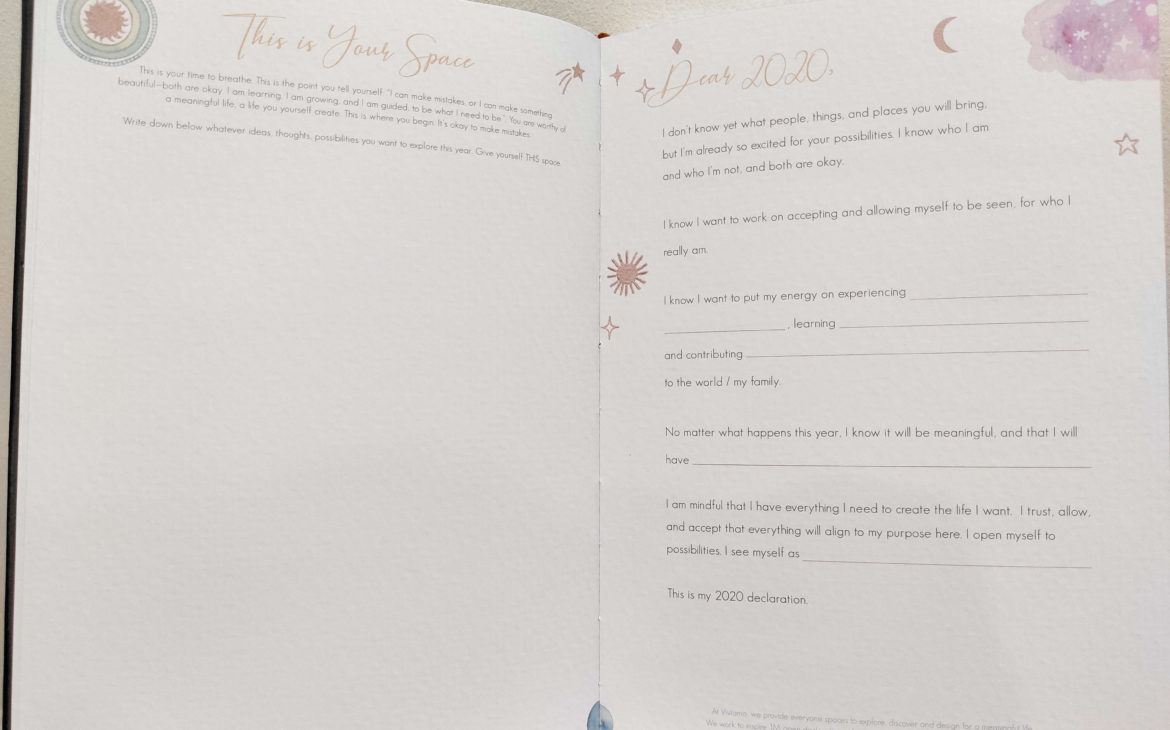 This is Your Space
This is your time to breathe. This is the point you tell yourself: "I can make mistakes, or I can make something
beautiful—both are okay. I am learning, I am growing, and I am guided, to be what I need to be." You are worthy of
a meaningful life, a life you yourself create. This is where you begin. It's okay to make mistakes.
Write down below whatever ideas, thoughts, possibilities you want to explore this year. Give yourself THIS space.
Dear 2020,
I don't know yet what people, things, and places you will bring,
but I'm already so excited for your possibilities. I know who I am
and who I'm not, and both are okay.
I know I want to work on accepting and allowing myself to be seen, for who I
really am.
I know I want to put my energy on experiencing
, learning
and contributing
to the world / my family.
No matter what happens this year, I know it will be meaningful, and that I will
have
I am mindful that I have everything I need to create the life I want. I trust, allow,
and accept that everything will align to my purpose here. I open myself to
possibilities. I see myself as
This is my 2020 declaration.
we provide everyone spaces to explore, discover and design for a meaningful life.
We work to inspire